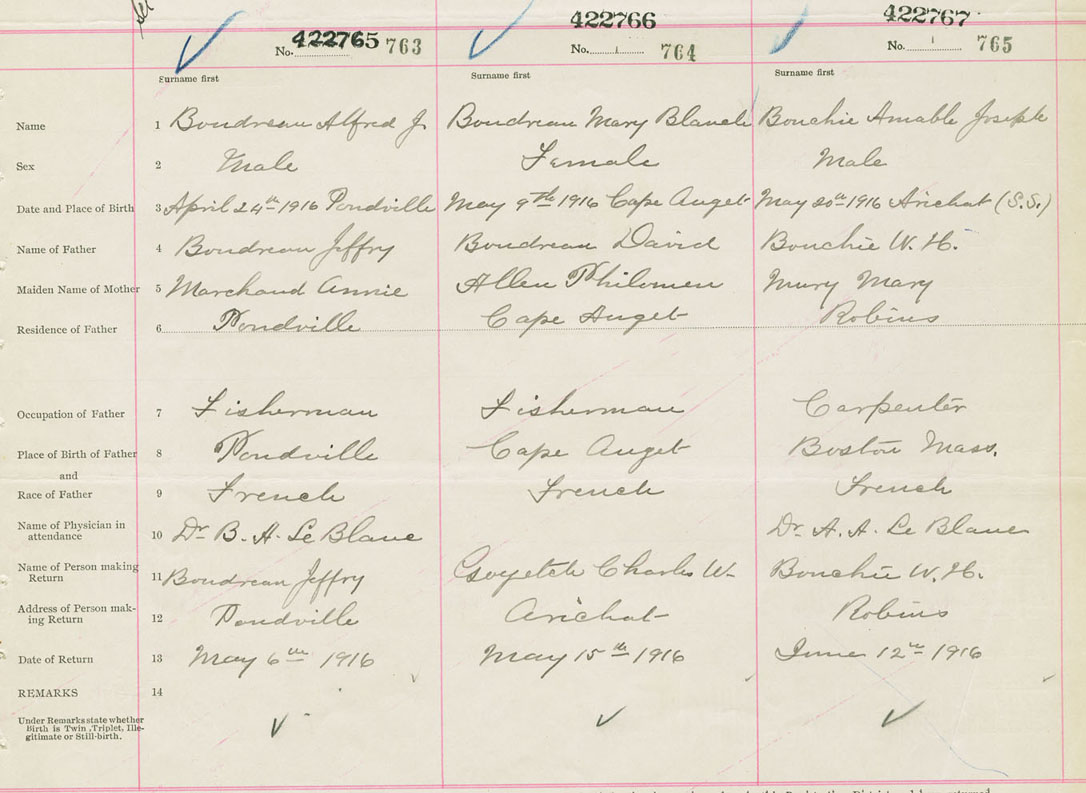 422765 763 422766 422767
No. No. 764 No. 765
Surname first Surname first Surname first
Name 1 Boudreau Alfred J. Boudreau Mary Blanch Bouchie Amable Joseph
Sex 2 Male Female Male
Date and Place of Birth 3 April 24th 1916 Pondville May 9th 1916 Cape Auget May 20th 1916 Arichat (S.S.)
Name of Father 4 Boudreau Jeffry Boudreau David Bouchie W. H.
Maiden Name of Mother 5 Marchand Annie Allen Philomen Mury Mary
Residence of Father 6 Pondville Cape Auget Robins
Occupation of Father 7 Fisherman Fisherman Carpenter
Place of Birth of Father 8 Pondville Cape Auget Boston Mass.
and
Race of Father 9 French French French
Name of Physician in
attendance 10 Dr. B. A. Le Blanc Dr. A. A. Le Blanc
Name of Person making
Return 11 Boudreau Jeffry Goyetch Charles W. Bouchie W. H.
Address of Person mak-
ing Return 12 Pondville Arichat Robins
Date of Return 13 May 6th 1916 May 15th 1916 June 12th 1916
REMARKS 14
Under Remarks state whether
Birth is Twin, Triplet, Ille-
gitimate or Still-birth.